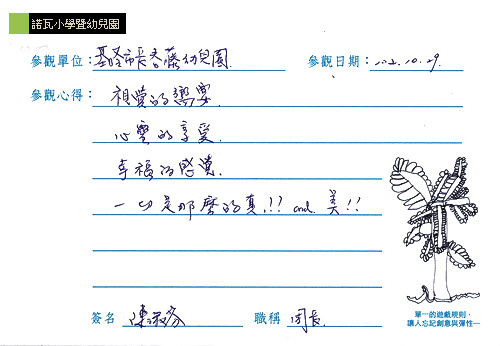 諾瓦小學暨幼兒園
參觀單位：基隆市長春藤幼兒園 參觀日期：102.10.29.
參觀心得：視覺的饗宴.
心靈的享受.
幸福的感覺.
一切是那麼的真!!! and. 美!!
簽名 陳 職稱 園長
單一的遊戲規則，
讓人忘記創意與彈性—